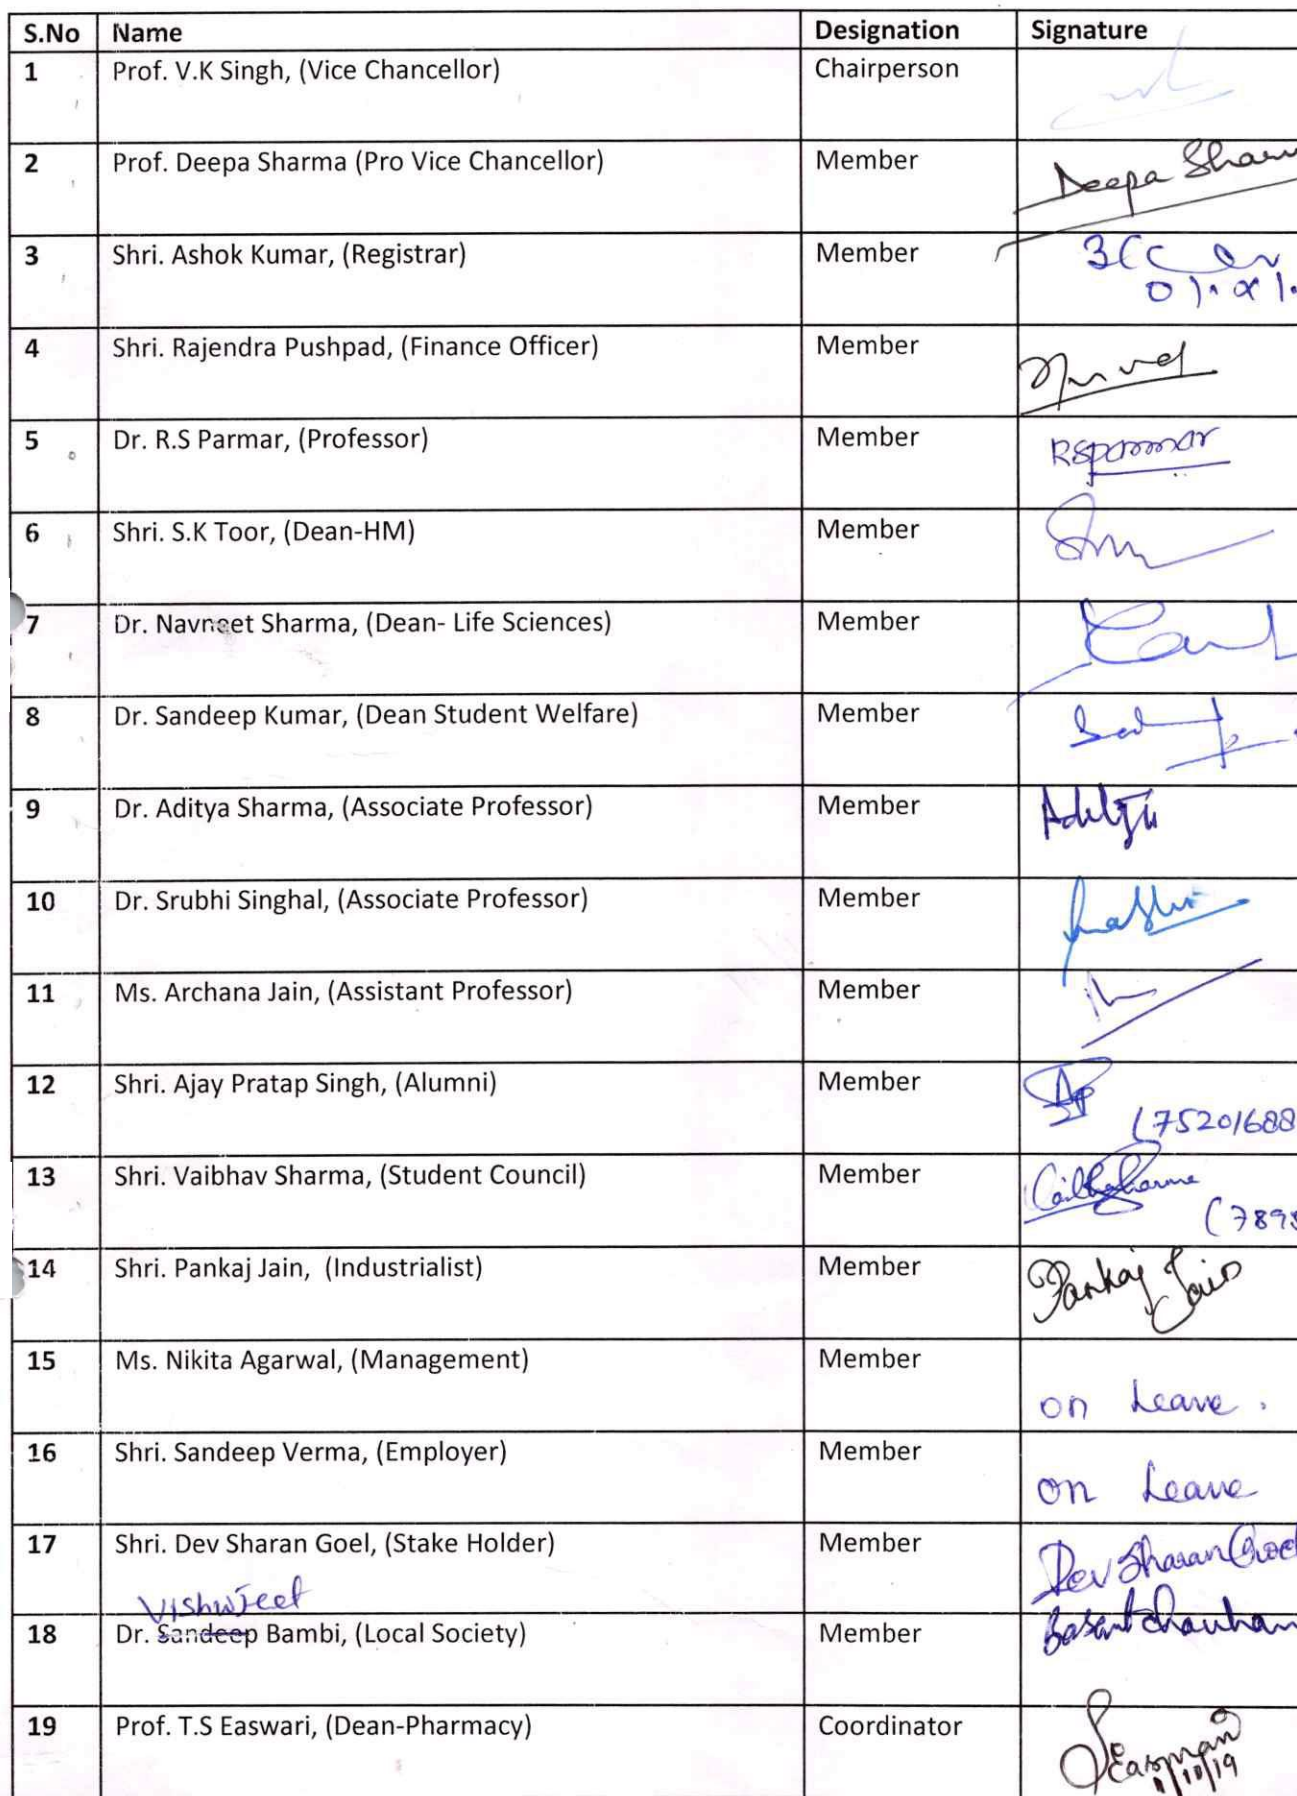 S.No Name Designation Signature
1 Prof. V.K Singh, (Vice Chancellor) Chairperson
2 Prof. Deepa Sharma (Pro Vice Chancellor) Member Deepa Sharm
3 Shri. Ashok Kumar, (Registrar) Member
4 Shri. Rajendra Pushpad, (Finance Officer) Member
5 Dr. R.S Parmar, (Professor) Member RSparmar
6 Shri. S.K Toor, (Dean-HM) Member
7 Dr. Navneet Sharma, (Dean- Life Sciences) Member
8 Dr. Sandeep Kumar, (Dean Student Welfare) Member
9 Dr. Aditya Sharma, (Associate Professor) Member
10 Dr. Srubhi Singhal, (Associate Professor) Member
11 Ms. Archana Jain, (Assistant Professor) Member
12 Shri. Ajay Pratap Singh, (Alumni) Member
(75201688
13 Shri. Vaibhav Sharma, (Student Council) Member
(7895
14 Shri. Pankaj Jain, (Industrialist) Member Pankaj Jain
15 Ms. Nikita Agarwal, (Management) Member
on Leave.
16 Shri. Sandeep Verma, (Employer) Member
on Leave
17 Shri. Dev Sharan Goel, (Stake Holder) Member Dev Sharan Goel
Vishwjeet
18 Dr. Sandeep Bambi, (Local Society) Member Basant Chauhan
19 Prof. T.S Easwari, (Dean-Pharmacy) Coordinator
1/10/19